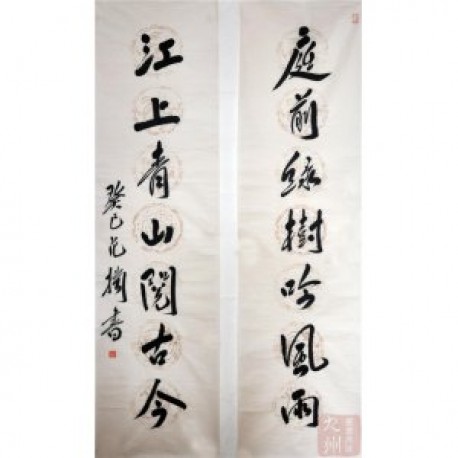 庭前綠樹吟風雨
江上青山閱古今
癸巳 范 書
九州